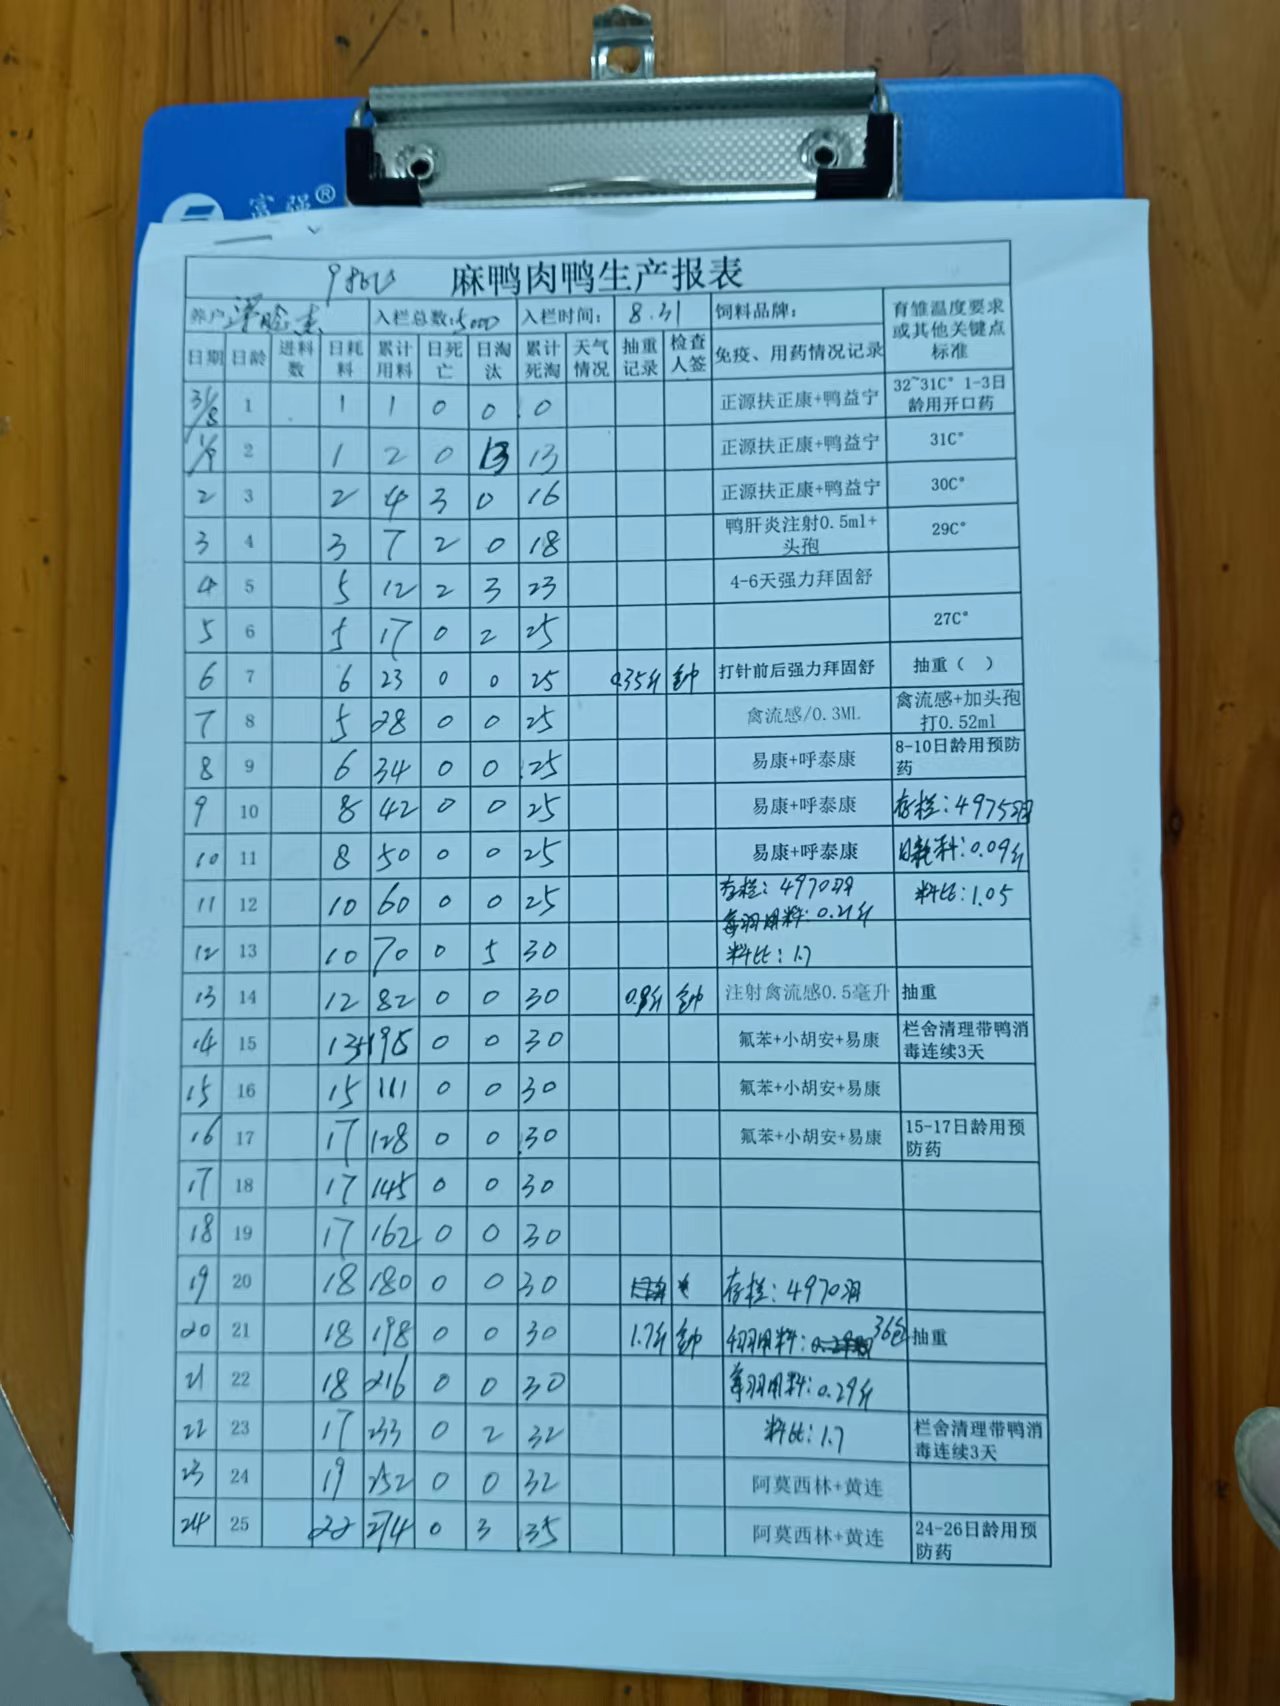 富强®
麻鸭肉鸭生产报表
养户 入栏总数:5000 入栏时间: 8.31 饲料品牌: 育雏温度要求或其他关键点标准
日期 日龄 进料数 日耗料 累计用料 日死亡 日淘汰 累计死淘 天气情况 抽重记录 检查人签 免疫、用药情况记录
31/8 1 1 1 0 0 0 正源扶正康+鸭益宁 32~31C° 1-3日龄用开口药
1/9 2 1 2 0 13 13 正源扶正康+鸭益宁 31C°
2 3 2 4 3 0 16 正源扶正康+鸭益宁 30C°
3 4 3 7 2 0 18 鸭肝炎注射0.5ml+头孢 29C°
4 5 5 12 2 3 23 4-6天强力拜固舒
5 6 5 17 0 2 25 27C°
6 7 6 23 0 0 25 0.35斤 打针前后强力拜固舒 抽重（ ）
7 8 5 28 0 0 25 禽流感/0.3ML 禽流感+加头孢打0.52ml
8 9 6 34 0 0 25 易康+呼泰康 8-10日龄用预防药
9 10 8 42 0 0 25 易康+呼泰康 存栏:4975羽
10 11 8 50 0 0 25 易康+呼泰康 日耗料:0.09斤
11 12 10 60 0 0 25 存栏:4970羽 每羽用料:0.21斤 料比:1.05
12 13 10 70 0 5 30 料比:1.7
13 14 12 82 0 0 30 注射禽流感0.5毫升 抽重
14 15 0 0 30 氟苯+小胡安+易康 栏舍清理带鸭消毒连续3天
15 16 15 111 0 0 30 氟苯+小胡安+易康
16 17 17 128 0 0 30 氟苯+小胡安+易康 15-17日龄用预防药
17 18 17 145 0 0 30
18 19 17 162 0 0 30
19 20 18 180 0 0 30 存栏:4970羽
20 21 18 198 0 0 30 1.7斤 36包 抽重
21 22 18 216 0 0 30 每羽用料:0.29斤
22 23 17 233 0 2 32 料比:1.7 栏舍清理带鸭消毒连续3天
23 24 19 252 0 0 32 阿莫西林+黄连
24 25 22 274 0 3 35 阿莫西林+黄连 24-26日龄用预防药